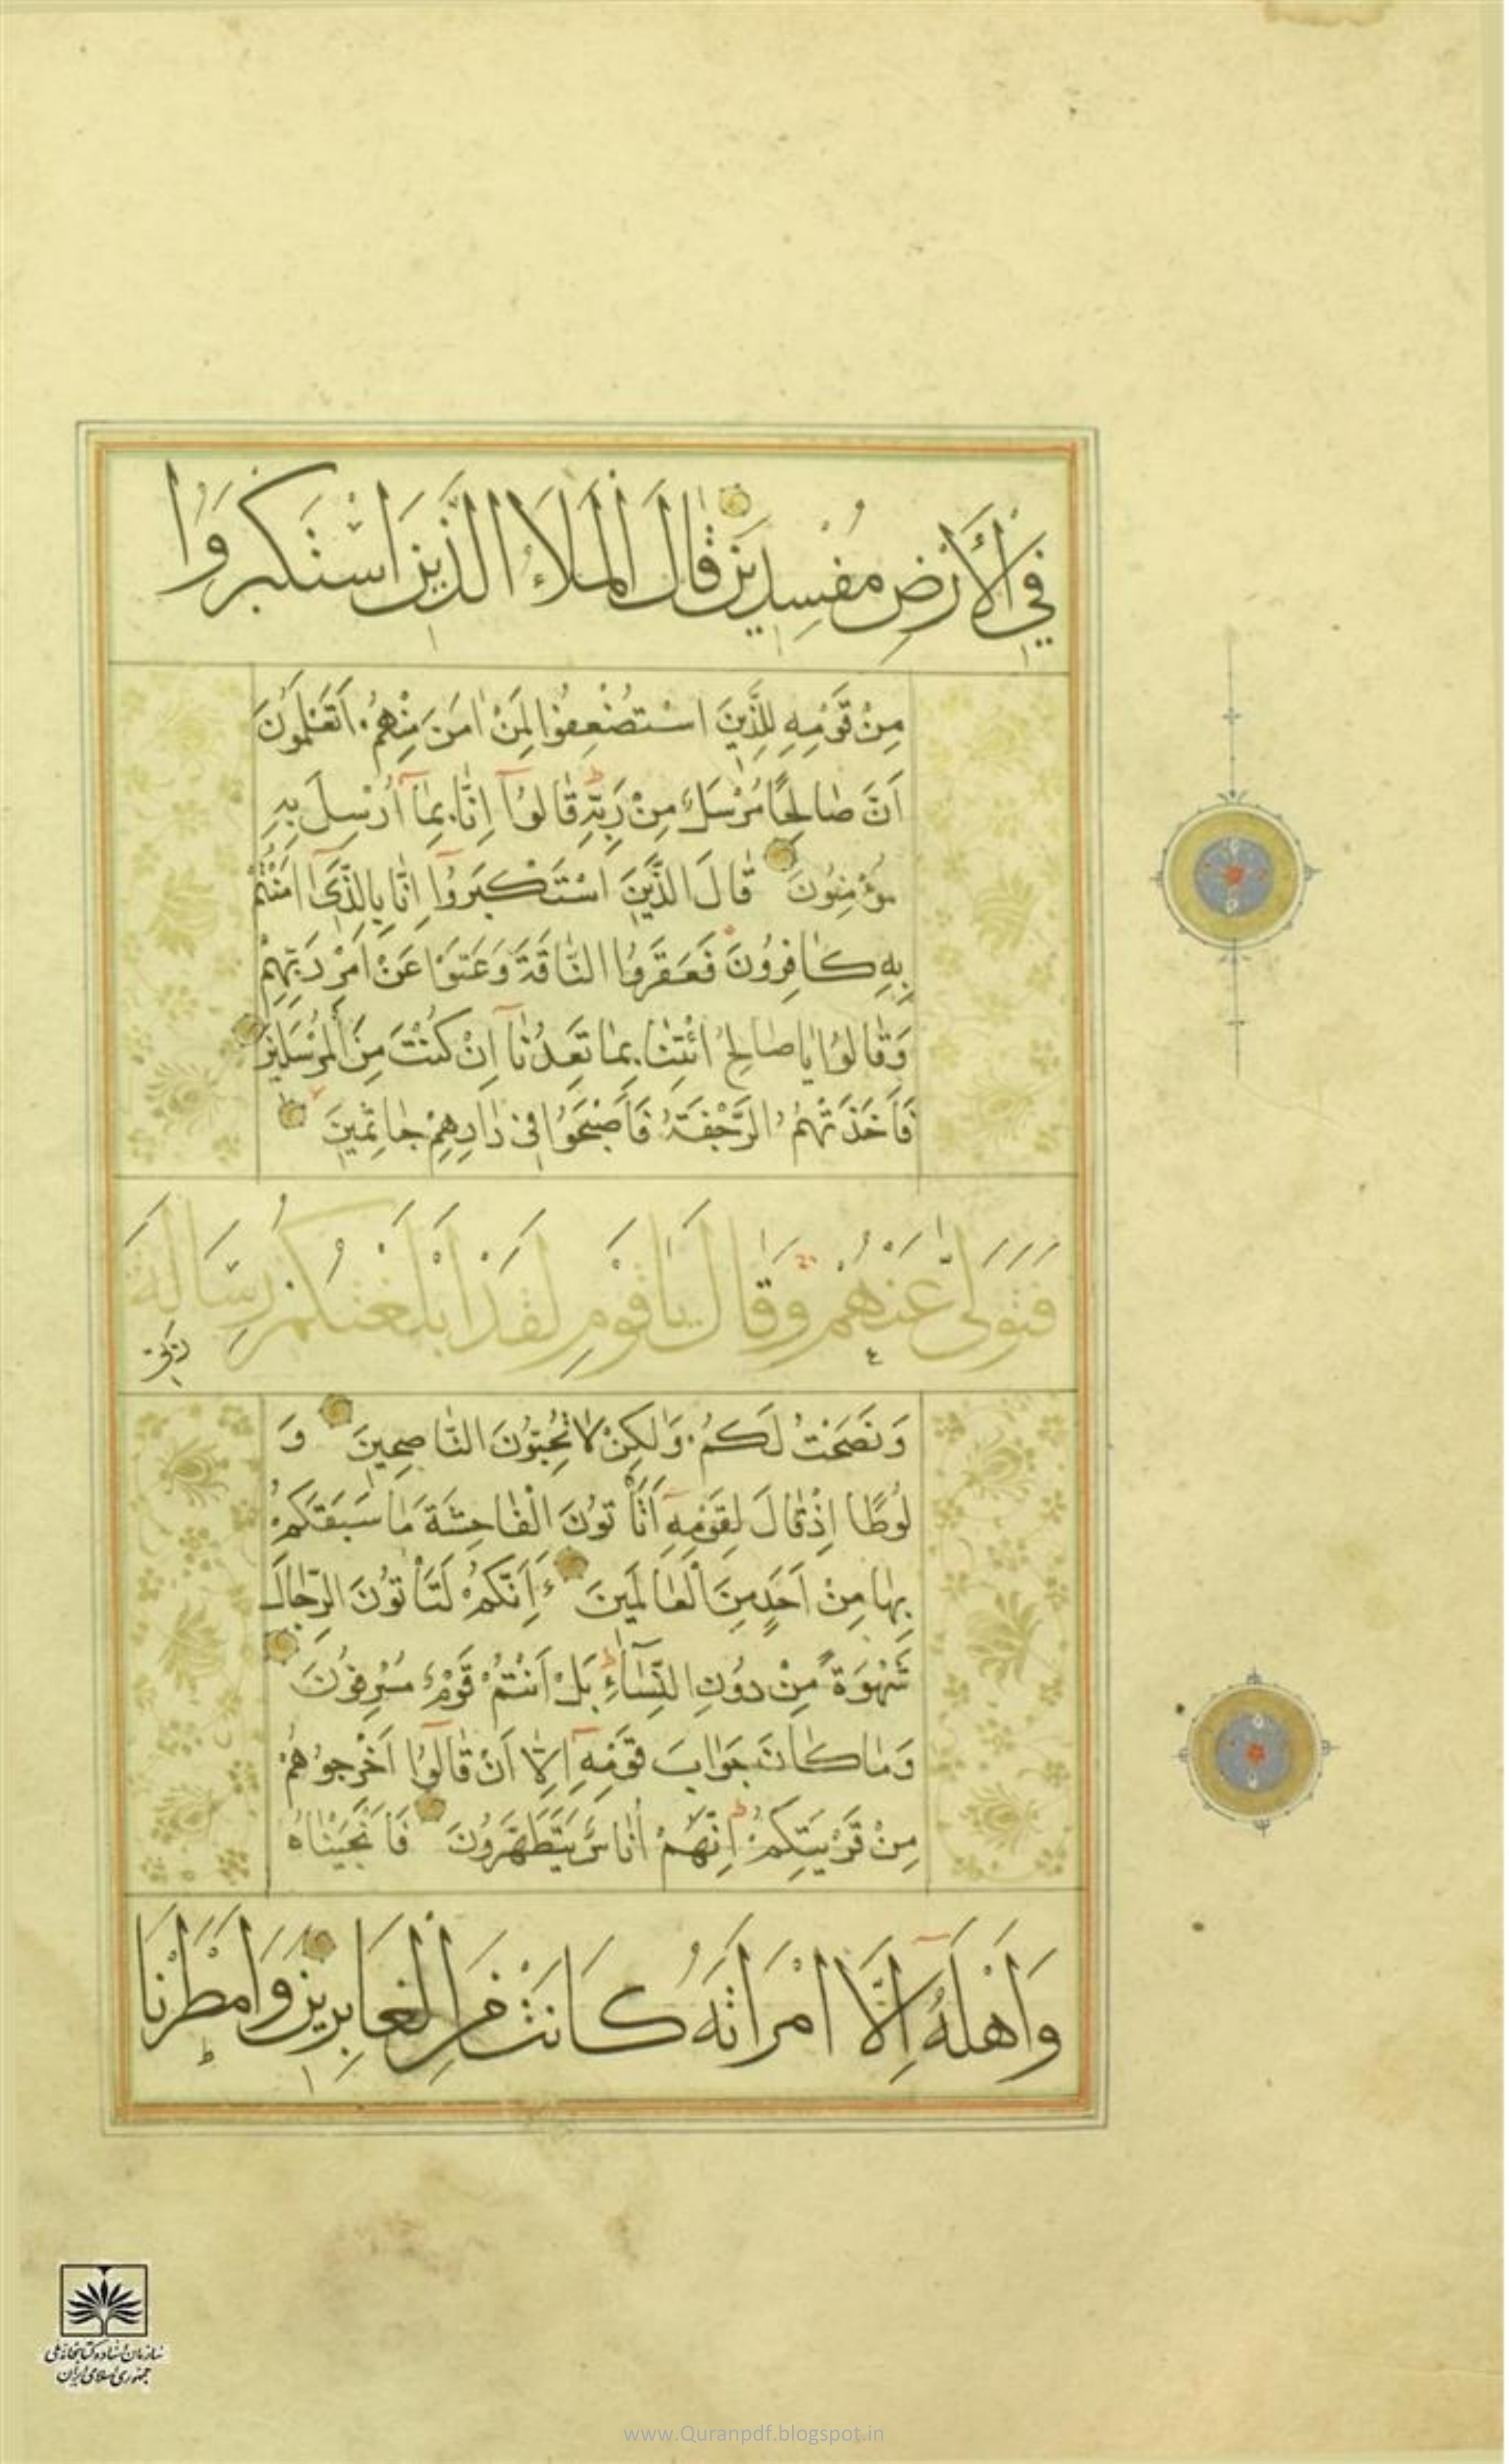 فِي الْأَرْضِ مُفْسِدِينَ قَالَ الْمَلَاءُ الَّذِينَ اسْتَكْبَرُوا
مِنْ قَوْمِهِ لِلَّذِينَ اسْتُضْعِفُوا لِمَنْ اٰمَنَ مِنْهُمْ اَتَعْلَمُونَ
اَنَّ صَالِحًا مُرْسَلٌ مِنْ رَبِّهِ قَالُوآ اِنَّا بِمَآ اُرْسِلَ بِهِ
مُؤْمِنُونَ قَالَ الَّذِينَ اسْتَكْبَرُوآ اِنَّا بِالَّذِىٓ اٰمَنْتُمْ
بِهِ كَافِرُونَ فَعَقَرُوا النَّاقَةَ وَعَتَوْا عَنْ اَمْرِ رَبِّهِمْ
وَقَالُوا يَاصَالِحُ ائْتِنَا بِمَا تَعِدُنَآ اِنْ كُنْتَ مِنَ الْمُرْسَلِينَ
فَاَخَذَتْهُمُ الرَّجْفَةُ فَاَصْبَحُوا فِى دَارِهِمْ جَاثِمِينَ
فَتَوَلّٰى عَنْهُمْ وَقَالَ يَاقَوْمِ لَقَدْ اَبْلَغْتُكُمْ رِسَالَةَ
رَبِّى
وَنَصَحْتُ لَكُمْ وَلٰكِنْ لَا تُحِبُّونَ النَّاصِحِينَ وَ
لُوطًا اِذْ قَالَ لِقَوْمِهِٓ اَتَأْتُونَ الْفَاحِشَةَ مَا سَبَقَكُمْ
بِهَا مِنْ اَحَدٍ مِنَ الْعَالَمِينَ ءَاِنَّكُمْ لَتَأْتُونَ الرِّجَالَ
شَهْوَةً مِنْ دُونِ النِّسَآءِ بَلْ اَنْتُمْ قَوْمٌ مُسْرِفُونَ
وَمَا كَانَ جَوَابَ قَوْمِهِٓ اِلَّآ اَنْ قَالُوآ اَخْرِجُوهُمْ
مِنْ قَرْيَتِكُمْ اِنَّهُمْ اُنَاسٌ يَتَطَهَّرُونَ فَاَنْجَيْنَاهُ
وَاَهْلَهُٓ اِلَّا امْرَاَتَهُ كَانَتْ مِنَ الْغَابِرِينَ وَاَمْطَرْنَا
سازمان اسناد و کتابخانه ملی
جمهوری اسلامی ایران
www.Quranpdf.blogspot.in